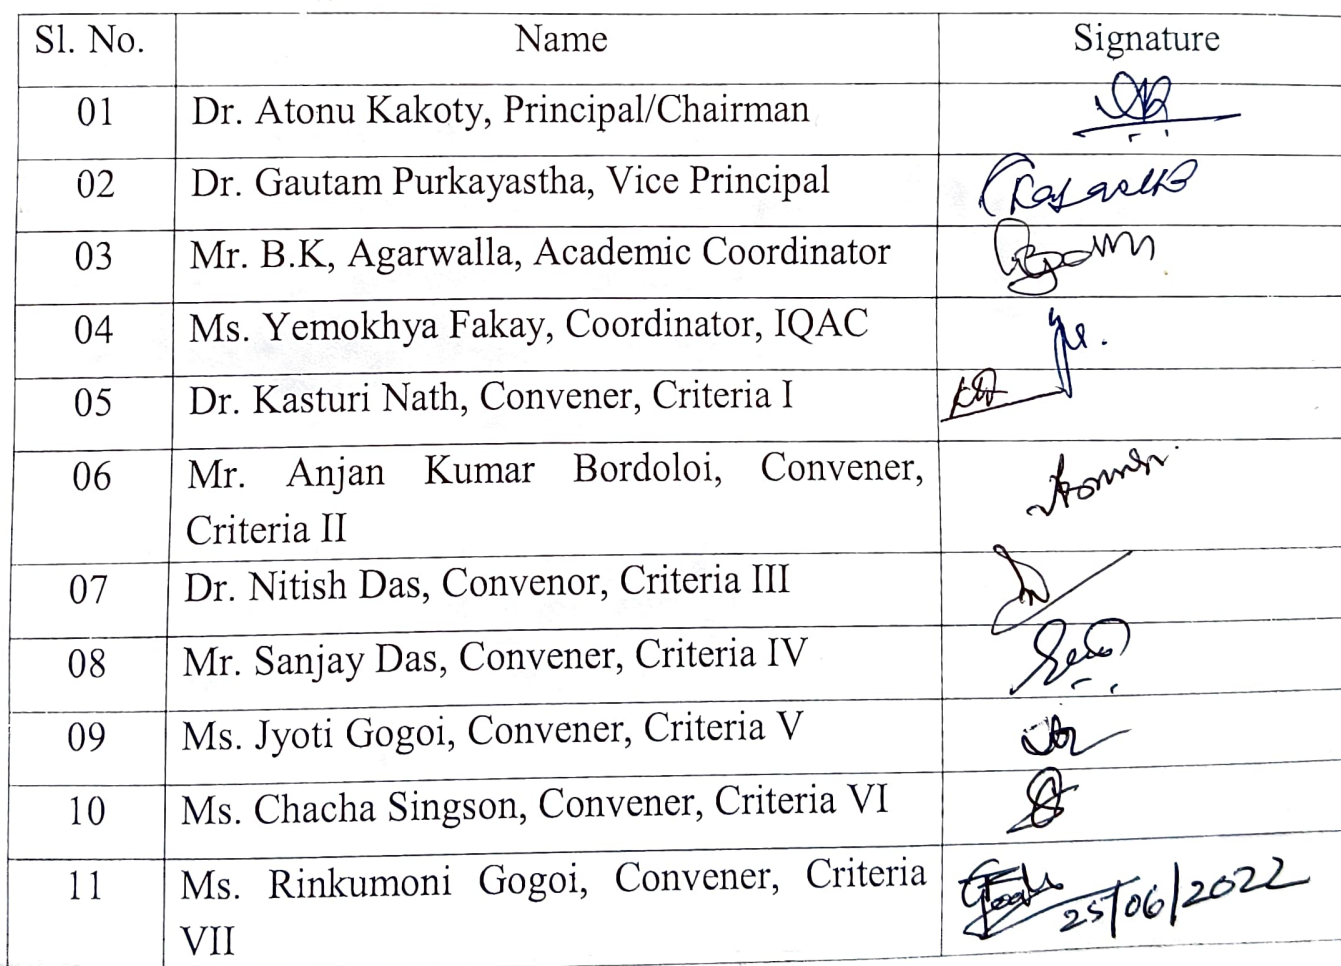 Sl. No. Name Signature
01 Dr. Atonu Kakoty, Principal/Chairman
02 Dr. Gautam Purkayastha, Vice Principal
03 Mr. B.K, Agarwalla, Academic Coordinator
04 Ms. Yemokhya Fakay, Coordinator, IQAC
05 Dr. Kasturi Nath, Convener, Criteria I
06 Mr. Anjan Kumar Bordoloi, Convener,
Criteria II
07 Dr. Nitish Das, Convenor, Criteria III
08 Mr. Sanjay Das, Convener, Criteria IV
09 Ms. Jyoti Gogoi, Convener, Criteria V
10 Ms. Chacha Singson, Convener, Criteria VI
11 Ms. Rinkumoni Gogoi, Convener, Criteria 25/06/2022
VII